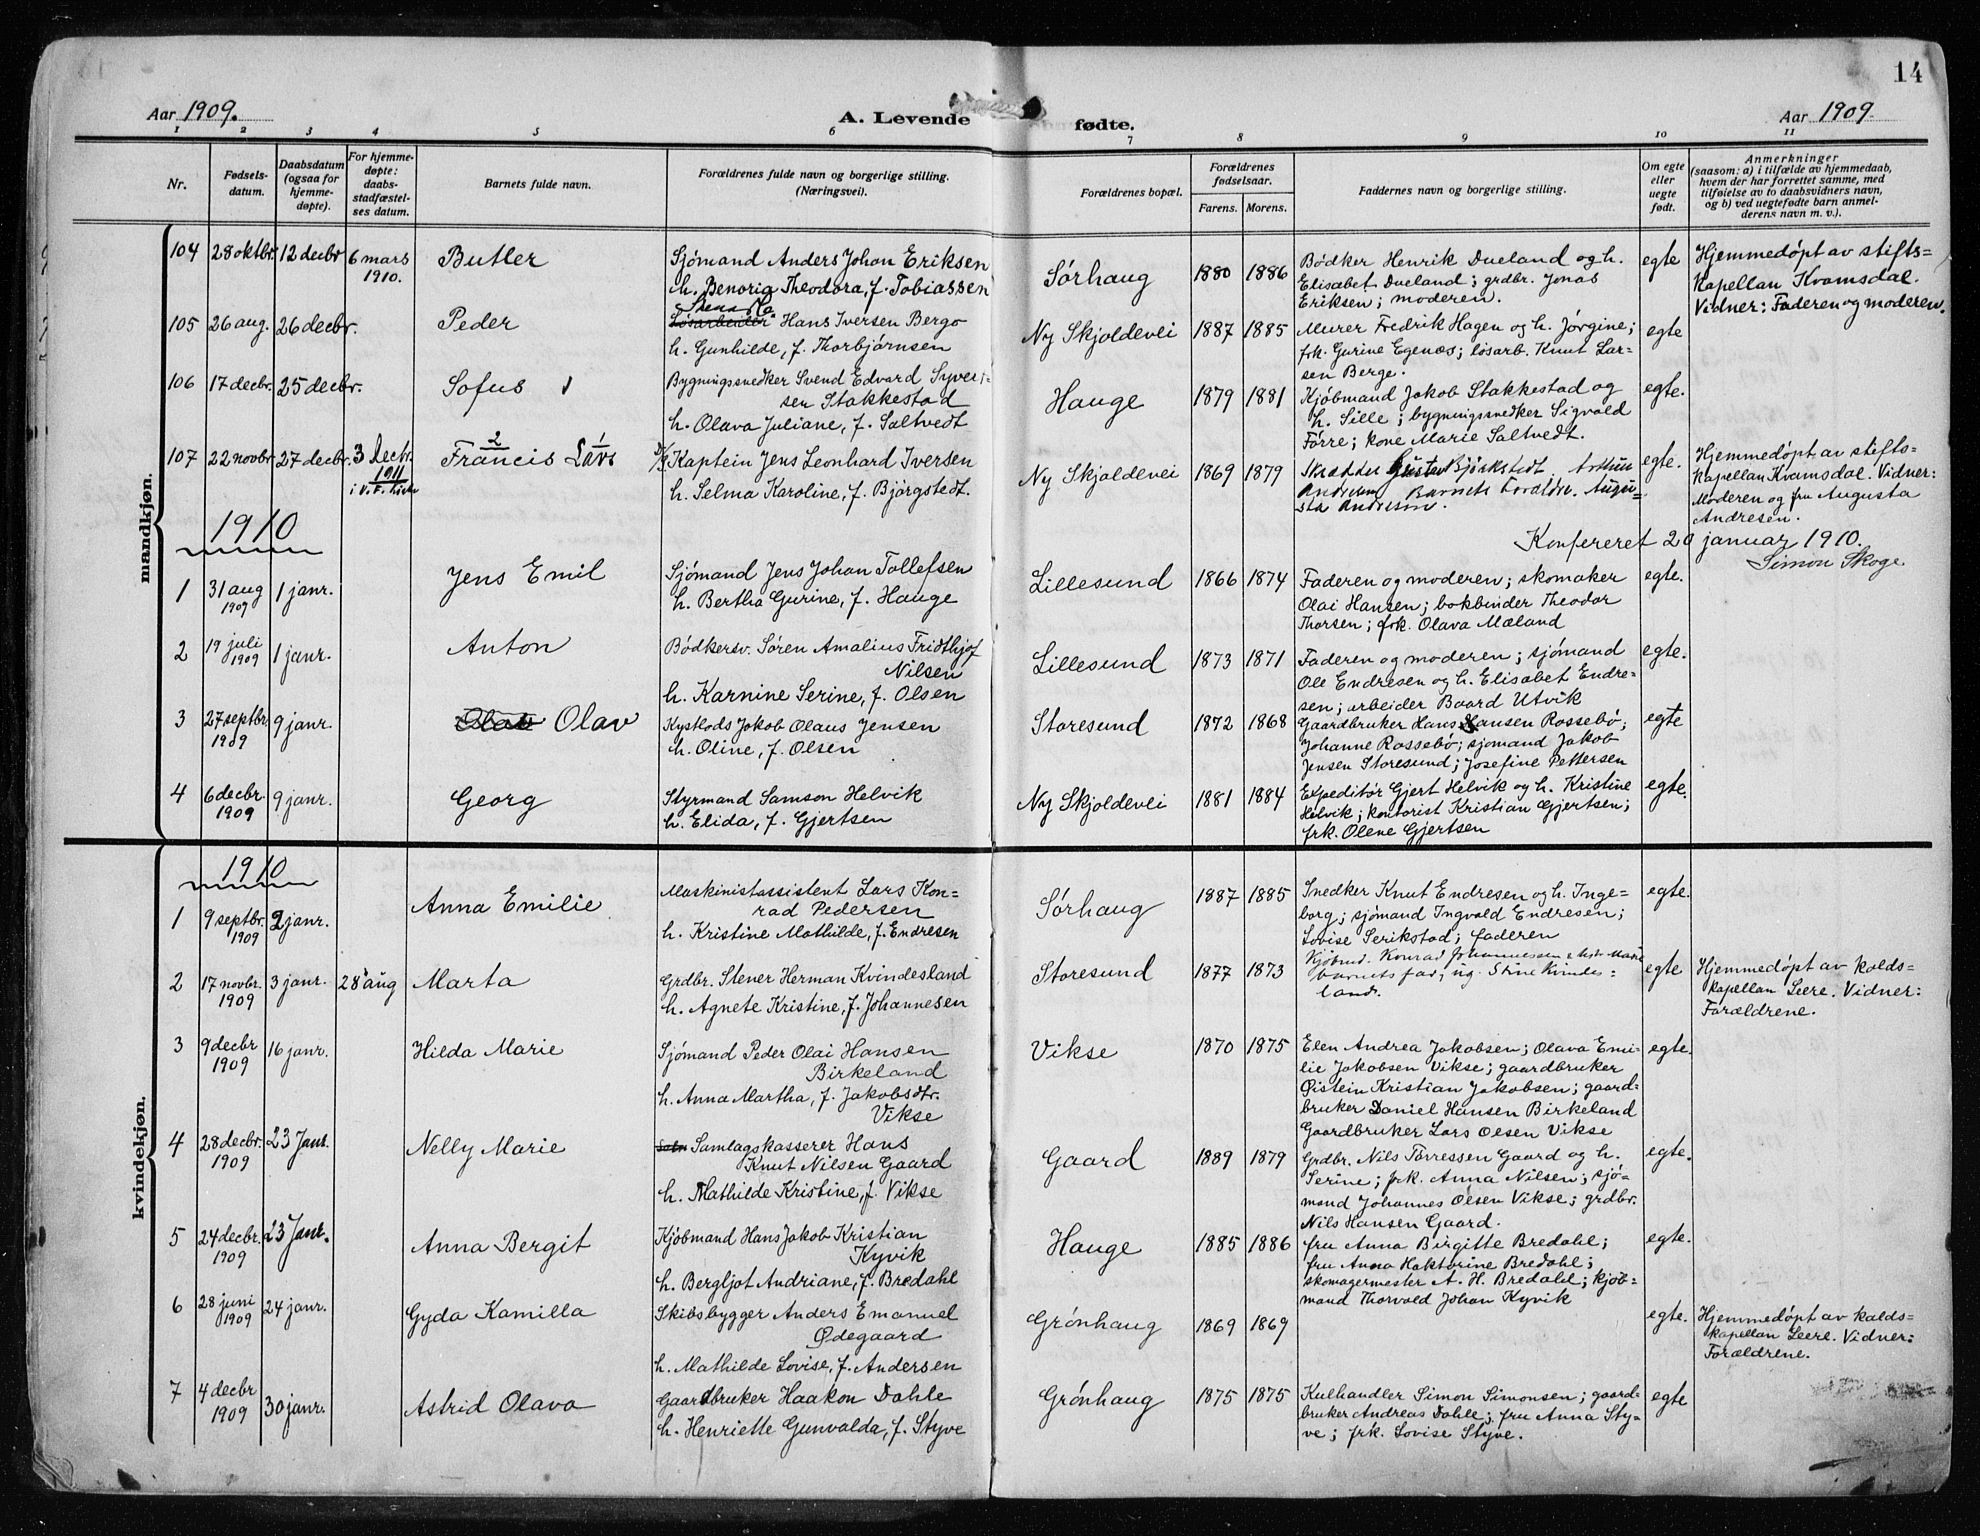 14
Aar 1909. A. Levende fødte. Aar 1909.
1 2 3 4 5 6 7 8 9 10 11
Nr.
Fødsels-
datum.
Daabsdatum
(ogsaa for
hjemme-
døpte).
For hjemme-
døpte:
daabs-
stadfæstel-
ses datum.
Barnets fulde navn.
Forældrenes fulde navn og borgerlige stilling.
(Næringsvei).
Forældrenes bopæl.
Forældrenes
fødselsaar.
Farens. Morens.
Faddernes navn og borgerlige stilling.
Om egte
eller
uegte
født.
Anmerkninger
(saasom: a) i tilfælde av hjemmedaab,
hvem der har forrettet samme, med
tilføielse av to daabsvidners navn,
og b) ved uegtefødte barn anmel-
derens navn m. v.).
mandkjøn.
104 28 oktbr. 12 decbr 6 mars
1910.
Butler
Sjømand Anders Johan Eriksen
h. Benoria Theodora, f. Tobiassen
Sørhaug 1880 1886
Bødker Henrik Dueland og h.
Elisabet Dueland; grdbr. Jonas
Eriksen; moderen.
egte
Hjemmedøpt av stifts=
kapellan Kvamsdal.
Vidner: Faderen og moderen.
105 26 aug. 26 decbr.
Peder
Løsarbeider Hans Iversen Bergo
h. Gunhilde, f. Thorbjørnsen
Ny Skjoldevei 1887 1885
Murer Fredrik Hagen og h. Jørgine;
frk. Gurine Egenæs; løsarb. Knut Lar-
sen Berge.
egte
106 17 decbr. 25 decbr.
Sofus
Bygningssnedker Svend Edvard Syvert-
sen Stakkestad
h. Olava Juliane, f. Saltvedt
Hauge 1879 1881
Kjøbmand Jakob Stakkestad og
h. Sille; bygningssnedker Sigvald
Førre; kone Marie Saltvedt.
egte.
107 22 novbr. 27 decbr. 3 Decbr.
1911
2 1
Francis Lars
Kaptein Jens Leonhard Iversen
h. Selma Karoline, f. Bjørgstedt.
Ny Skjoldevei 1869 1879
Skrædder Gustav Bjørkstedt. Arthur
Andresen Barnets Forældre. Augu-
sta Andresen.
egte.
Hjemmedøpt av stifts-
kapellan Kvamsdal. Vidner:
Moderen og fru Augusta
Andresen.
1910
Konfereret 20 januar 1910.
Simon Skoge
1 31 aug
1909
1 janr.
Jens Emil
Sjømand Jens Johan Tollefsen
h. Bertha Gurine, f. Hauge
Lillesund 1866 1874
Faderen og moderen; skomaker
Olai Hansen; bokbinder Theodor
Thorsen; frk. Olava Mæland
egte.
2 19 juli
1909
1 janr.
Anton
Bødkersv. Søren Amalius Fridthjof
Nilsen
h. Karnine Serine, f. Olsen
Lillesund 1873 1871
Faderen og moderen; sjømand
Ole Endresen og h. Elisabet Endre-
sen; arbeider Baard Utvik
egte.
3 27 septbr.
1909
9 janr.
Olav Olav
Kystlods Jakob Olaus Jensen
h. Oline, f. Olsen
Storesund 1872 1868
Gaardbruker Hans Hansen Rossebø;
Johanne Rossebø; sjømand Jakob
Jensen Storesund; Josefine Pettersen
egte
4 6 decbr.
1909
9 janr.
Georg
Styrmand Samson Helvik
h. Elida, f. Gjertsen
Ny Skjoldevei 1881 1884
Expeditør Gjert Helvik og h. Kristine
Helvik; kontorist Kristian Gjertsen;
frk. Olene Gjertsen
egte.
kvindekjøn.
1910
1 9 septbr.
1909
2 janr.
Anna Emilie
Maskinistassistent Lars Kon-
rad Pedersen
h. Kristine Mathilde, f. Endresen
Sørhaug 1887 1885
Snedker Knut Endresen og h. Inge-
borg; sjømand Ingvald Endresen;
Lovise Serikstad; faderen
egte.
2 17 novbr.
1909
3 janr. 28 aug
Marta
Grdbr. Stener Herman Kvindesland
h. Agnete Kristine, f. Johannesen
Storesund 1877 1873
Kjøbmd. Konrad Johannessen
barnets far, ug. Stine Kvindes-
land.
egte
Hjemmedøpt av kalds-
kapellan Leere. Vidner:
Forældrene.
3 9 decbr
1909
16 janr.
Hilda Marie
Sjømand Peder Olai Hansen
Birkeland
h. Anna Martha, f. Jakobsdtr.
Vikse
Vikse 1870 1875
Elen Andrea Jakobsen; Olava Emi-
lie Jakobsen Vikse; gaardbruker
Øistein Kristian Jakobsen; gaard-
bruker Daniel Hansen Birkeland
Gaardbruker Lars Olsen Vikse
egte.
4 28 decbr.
1909
23 Janr.
Nelly Marie
Samlagskasserer Hans
Knut Nilsen Gaard
h. Mathilde Kristine, f. Vikse
Gaard 1889 1879
Grdbr. Nils Tørressen Gaard og h.
Serine; frk. Anna Nilsen; sjø-
mand Johannes Olsen Vikse; grdbr.
Nils Hansen Gaard.
egte.
5 24 decbr.
1909
23 Janr.
Anna Bergit
Kjøbmand Hans Jakob Kristian
Kyvik
h. Bergljot Andriane, f. Bredahl
Hauge 1885 1886
fru Anna Birgitte Bredahl;
fru Anna Haktorine Bredahl;
skomagermester A. H. Bredahl; kjøb-
mand Thorvald Johan Kyvik
egte.
6 28 juni
1909
24 janr.
Gyda Kamilla
Skibsbygger Anders Emanuel
Ødegaard
h. Mathilde Lovise, f. Andersen
Grønhaug 1869 1869
egte.
Hjemmedøpt av kalds-
kapellan Leere. Vidner:
Forældrene.
7 4 decbr
1909
30 janr.
Astrid Olava
Gaardbruker Haakon Dahle
h. Henriette Gunvalda, f. Styve
Grønhaug 1875 1875
Kulhandler Simon Simonsen; gaard-
bruker Andreas Dahle; fru Anna Sty-
ve; frk. Lovise Styve.
egte